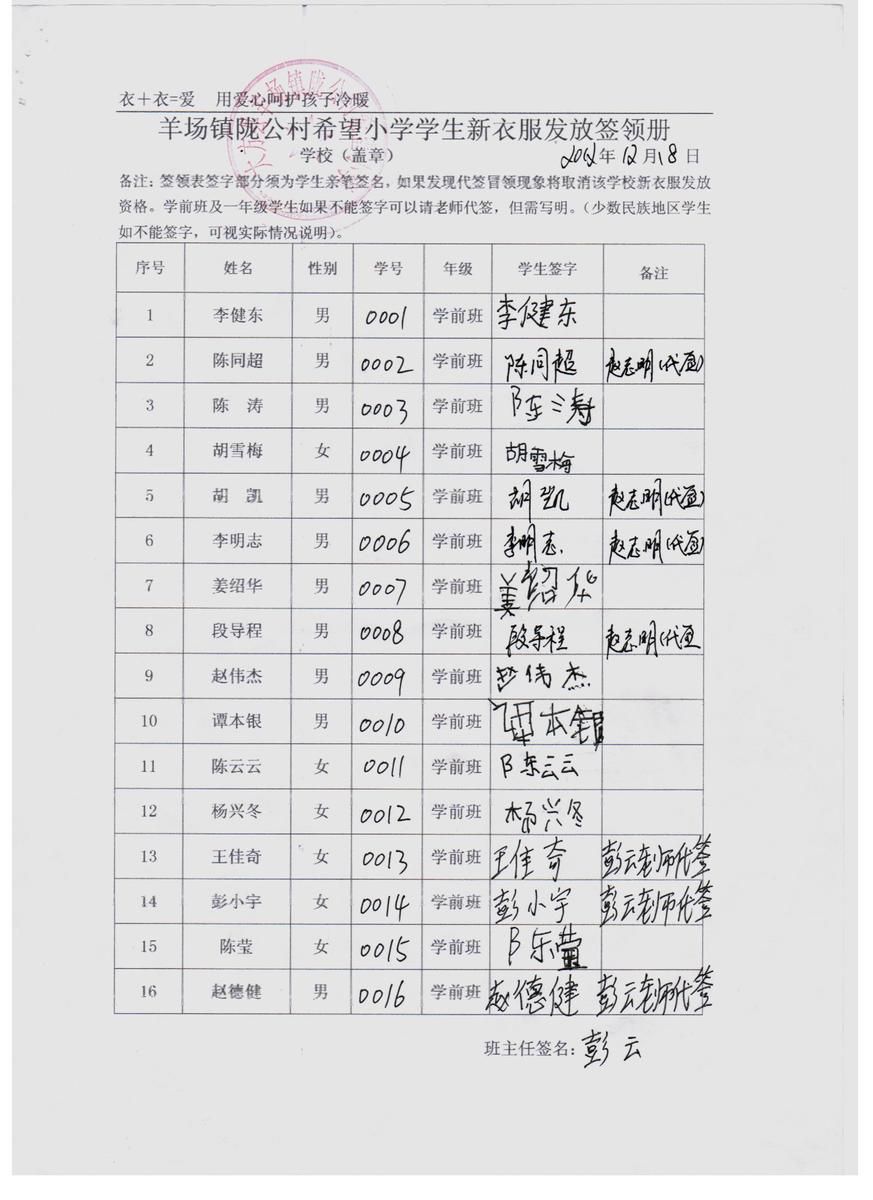 衣+衣=爱 用爱心呵护孩子冷暖
羊场镇陇公村希望小学学生新衣服发放签领册
学校（盖章） 2012年12月18日
备注：签领表签字部分须为学生亲笔签名，如果发现代签冒领现象将取消该学校新衣服发放
资格。学前班及一年级学生如果不能签字可以请老师代签，但需写明。（少数民族地区学生
如不能签字，可视实际情况说明）。
序号 姓名 性别 学号 年级 学生签字 备注
1 李健东 男 0001 学前班 李健东
2 陈同超 男 0002 学前班 陈同超 赵志明(代签)
3 陈 涛 男 0003 学前班 陈涛
4 胡雪梅 女 0004 学前班 胡雪梅
5 胡 凯 男 0005 学前班 胡凯 赵志明(代签)
6 李明志 男 0006 学前班 李明志. 赵志明(代签)
7 姜绍华 男 0007 学前班 姜绍华
8 段导程 男 0008 学前班 段导程 赵志明(代签
9 赵伟杰 男 0009 学前班 赵伟杰
10 谭本银 男 0010 学前班 谭本银
11 陈云云 女 0011 学前班 陈云云
12 杨兴冬 女 0012 学前班 杨兴冬
13 王佳奇 女 0013 学前班 王佳奇 彭云老师代签
14 彭小宇 女 0014 学前班 彭小宇 彭云老师代签
15 陈莹 女 0015 学前班 陈莹
16 赵德健 男 0016 学前班 赵德健 彭云老师代签
班主任签名：彭云